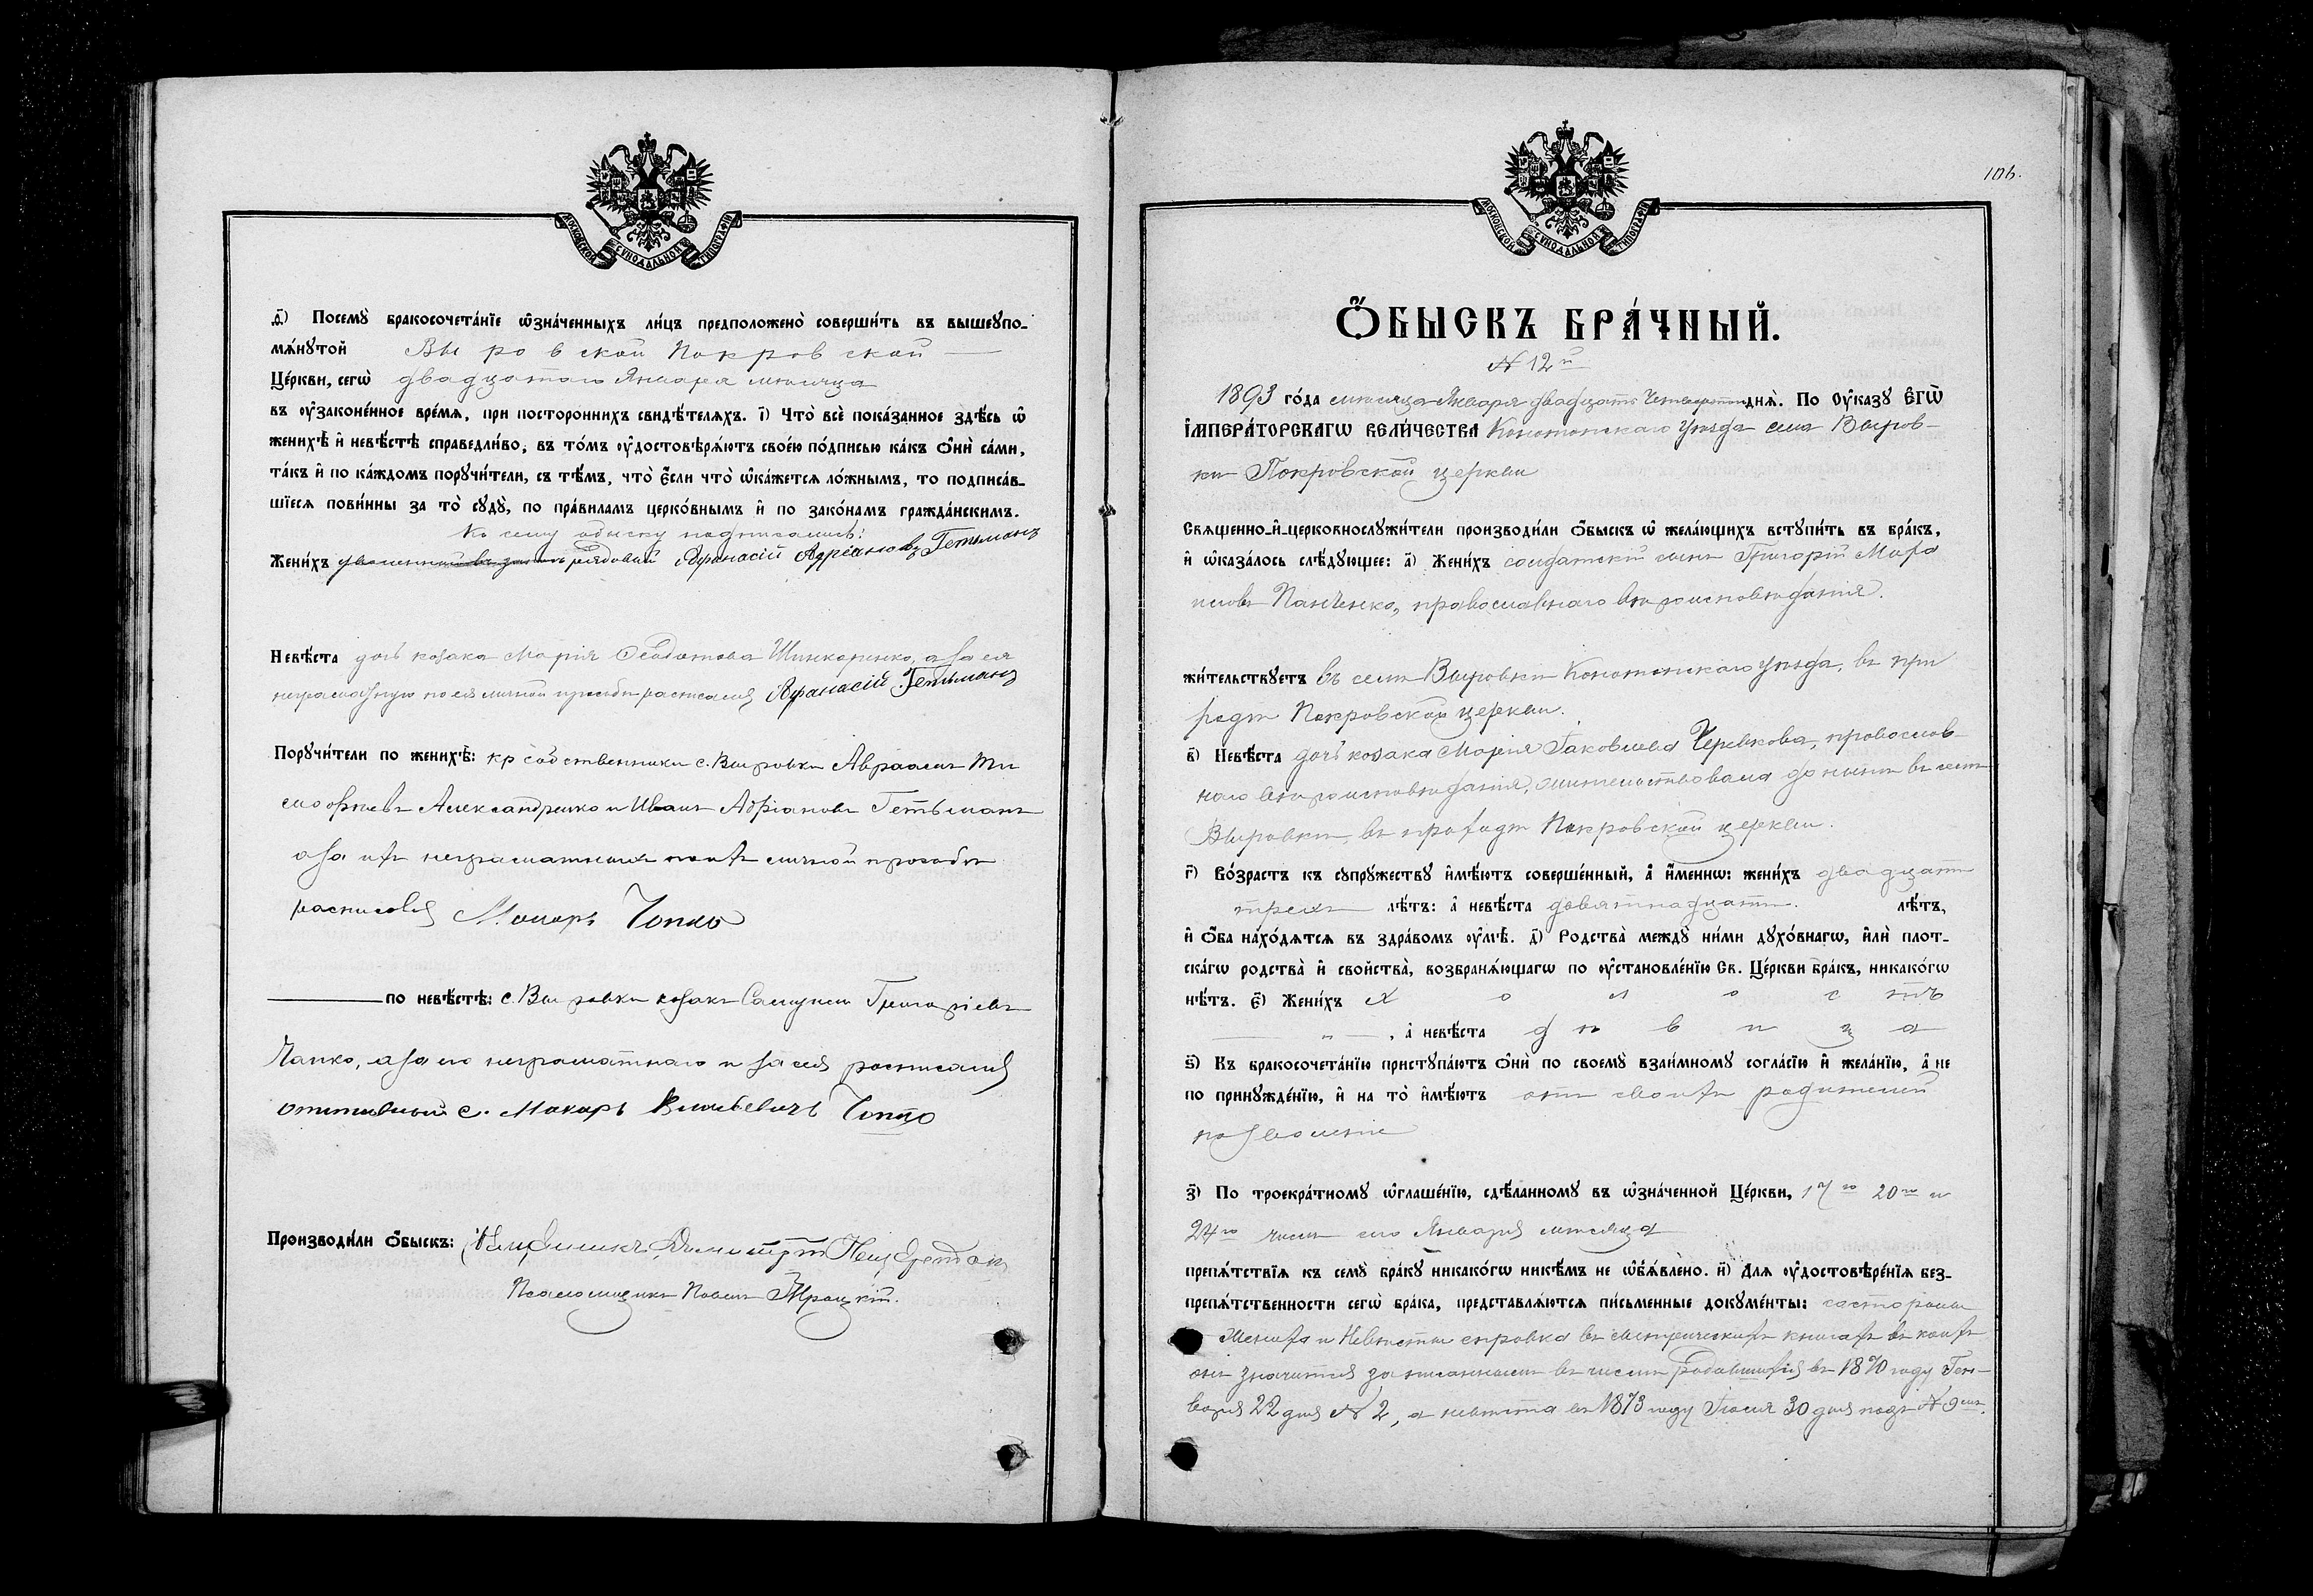 МОСКОВСКОЙ СѴНОДАЛЬНОЙ ТИПОГРАФІИ
д҃) Посемꙋ̀ бракосочета́нїе ѡ҆зна́ченныхъ ли́цъ предположено̀ соверши́ть въ вышеꙋпо-
мѧ́нꙋтой Выровской Покровской
Це́ркви, сегѡ̀ двадцатаго Января месяца
въ ᲂу҆зако́ненное вре́мѧ, при посторо́ннихъ свидѣ́телѧхъ. і҃) Что̀ всѐ пока́занное здѣ́сь ѡ҆
женихѣ̀ и҆ невѣ́стѣ справедли́во, въ то́мъ ᲂу҆достовѣрѧ́ютъ свое́ю по́дписью ка́къ ѻ҆нѝ са́ми,
та́къ и҆ по ка́ждомъ порꙋчи́тели, съ тѣ́мъ, что̀ є҆́сли что̀ ѡ҆ка́жетсѧ ло́жнымъ, то подписа́в-
шїесѧ пови́нны за то̀ сꙋдꙋ̀, по пра́виламъ церко́внымъ и҆ по зако́намъ гражда́нскимъ.
Къ сему обыску подписались:
Жени́хъ рядовой Афанасій Адріановъ Гетьманъ
Невѣ́ста дочь козака Марія Ѳеодотова Шинкаренко, а за ея
неграмотную по ея личной просьбѣ расписался Афанасій Гетьманъ
Порꙋчи́тели по женихѣ̀: кр собственники с. Выровки Авраамъ Ти
моѳеевъ Александренко и Иванъ Адріановъ Гетьманъ
а за ихъ неграмотныхъ по ихъ личной просьбѣ
расписался Макаръ Чопко
по невѣ́стѣ: с. Выровки козакъ Самуилъ Григоріевъ
Чапко, а за его неграмотнаго и за себя росписался
с. Макаръ Чопко
Производи́ли ѻ҆́быскъ: Священникъ Димитрій
Псаломщикъ Павелъ Троцкій.
106.
МОСКОВСКОЙ СѴНОДАЛЬНОЙ ТИПОГРАФІИ
Ѻ҆́БЫСКЪ БРА́ЧНЫЙ.
N 12й
1893 го́да месяца Января двадцать Четвертого днѧ̀. По ᲂу҆ка́зꙋ Є҆ГѠ̀
І҆МПЕРА́ТОРСКАГѠ ВЕЛИ́ЧЕСТВА Конотопскаго уѣзда села Выров-
ки Покровской церкви
Свѧщенно-и҆-церковнослꙋжи́тели производи́ли ѻ҆́быскъ ѡ҆ жела́ющихъ встꙋпи́ть въ бра́къ,
и҆ ѡ҆каза́лось слѣ́дꙋющее: а҃) Жени́хъ солдатскій сынъ Григорій Мар
Панченко, православнаго вѣроисповѣданія.
жи́тельствꙋетъ въ селѣ Выровкѣ Конотопскаго уѣзда, въ при
ходѣ Покровской церкви.
в҃) Невѣ́ста дочь козака Марія Іаковлева Черевкова, православ-
наго вѣроисповѣданія, жительствовала до нынѣ въ селѣ
Выровкѣ, въ приходѣ Покровской церкви.
г҃) Во́зрастъ къ сꙋпрꙋ́жествꙋ и҆мѣ́ютъ соверше́нный, а҆ и҆́меннѡ: жени́хъ двадцати
трехъ лѣ́тъ: а҆ невѣ́ста девятнадцати. лѣ́тъ,
и҆ ѻ҆́ба нахо́дѧтсѧ въ здра́вомъ ᲂу҆мѣ̀. д҃) Родства̀ междꙋ̀ ни́ми дꙋхо́внагѡ, и҆лѝ плот-
ска́гѡ родства̀ и҆ свойства̀, возбранѧ́ющагѡ по ᲂу҆становле́нїю Св. Це́ркви бра́къ, никако́гѡ
нѣ́тъ. є҃) Жени́хъ холостъ
„ , а҆ невѣ́ста дѣвица
ѕ҃) Къ бракосочета́нїю пристꙋпа́ютъ ѻ҆нѝ по своемꙋ̀ взаи́мномꙋ согла́сїю и҆ жела́нїю, а҆ не
по принꙋжде́нїю, и҆ на то̀ и҆мѣ́ютъ отъ своихъ родителей
позволеніе
з҃) По троекра́тномꙋ ѡ҆глаше́нїю, сдѣ́ланномꙋ въ ѡ҆зна́ченной Це́ркви, 17го 20го и
24го числъ сего Января мѣсяца
препѧ́тствїѧ къ семꙋ̀ бра́кꙋ никако́гѡ никѣ́мъ не ѡ҆б̾ѧ́влено. и҃) Длѧ ᲂу҆достовѣре́нїѧ без-
препѧ́тственности сегѡ̀ бра́ка, представлѧ́ютсѧ пи́сьменные докꙋме́нты: со стороны
Жениха и Невѣсты справка въ метрическихъ книгахъ въ коихъ
онъ значится записаннымъ въ числѣ родившихся въ 1870 году Ген-
варя 22 дня N 2, а невѣста въ 1873 году Іюля 30 дня подъ N 9мъ.